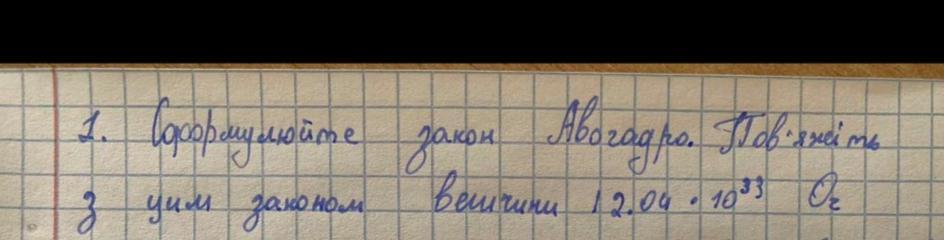 1. Сформулюйте закон Авогадро. Пов'яжіть
з цим законом величини 12.04 · 10³³ O₂